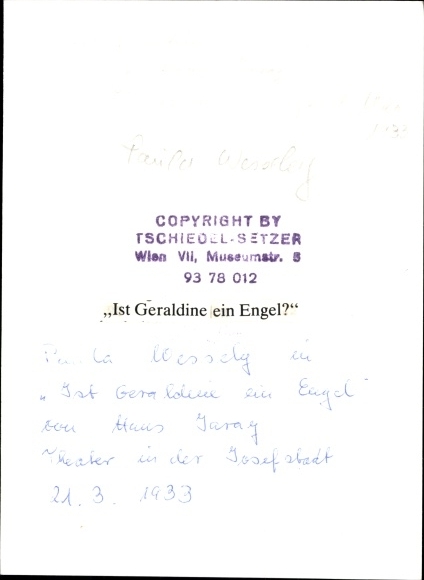 1933
Paula Wessely
COPYRIGHT BY
TSCHIEDEL-SETZER
Wien VII, Museumstr. 5
93 78 012
„Ist Geraldine ein Engel?“
Paula Wessely in
„Ist Geraldine ein Engel"
von Hans Jaray
Theater in der Josefstadt
21. 3. 1933